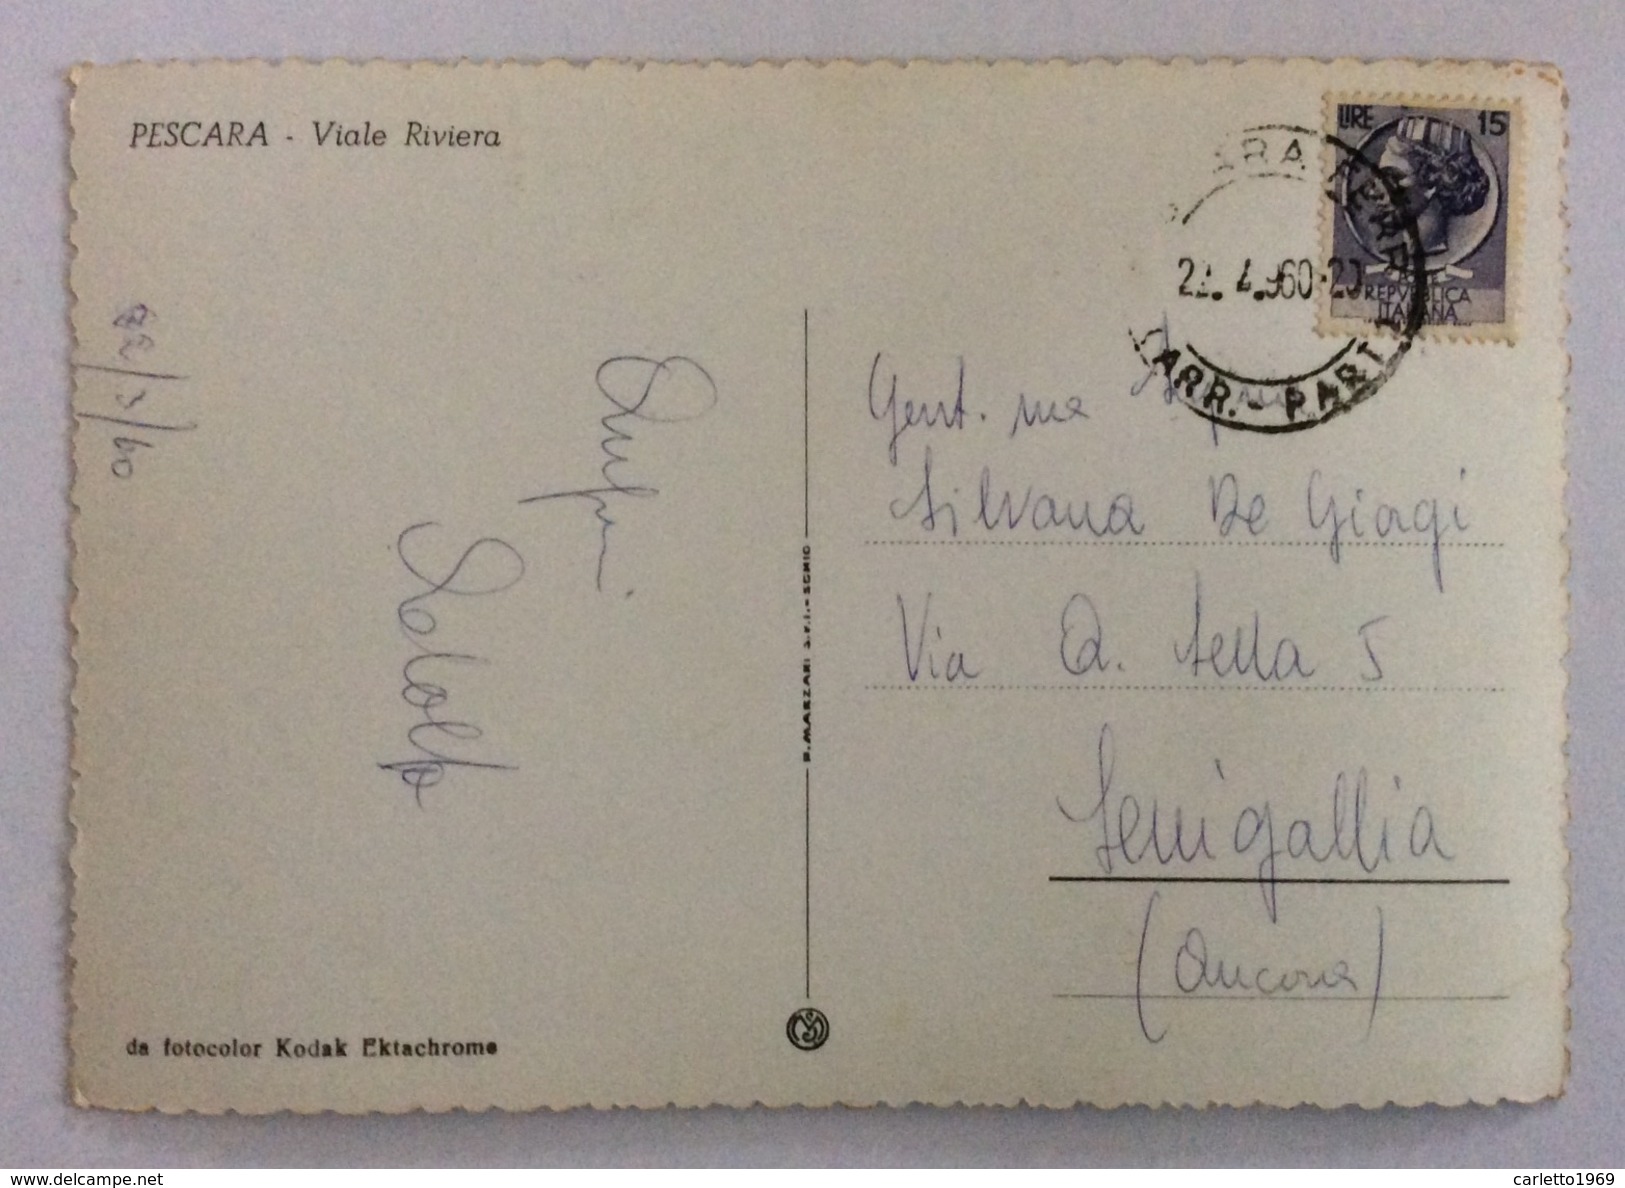 PESCARA - Viale Riviera
LIRE 15
REPVBBLICA
ITALIANA
4.960-20
ARR.-PART
Gent. ma
Silvana De Giorgi
Via Q. Sella 5
Senigallia
(Ancona)
22/3/60
Auguri
P. MARZARI S.R.L.-SCHIO
da fotocolor Kodak Ektachrome
www.delcampe.net
carletto1969